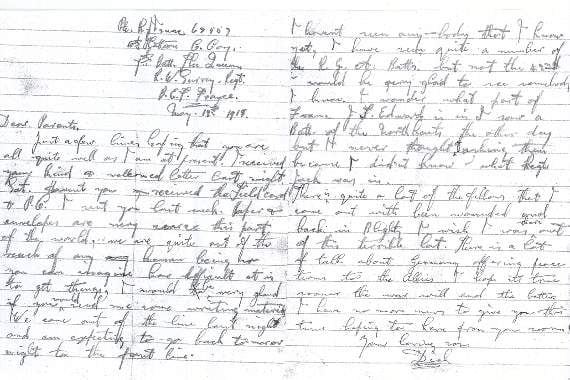 Pte R Jouce 68407
C. Coy.
7th Batt. The Queens
R. W. Surrey. Regt.
B.E.F. France.
1918.
Dear Parents,
Just a few lines hoping that you are
all quite well as I am at present. I received
your kind & welcomed letter last night
I sent you received the field card
I sent you last week. Paper &
envelopes are very scarce this part
of the world, we are quite out of the
reach of any human being here
you can imagine how difficult it is
to get things. I would be very glad
if you would send me some writing material
We came out of the line last night
and am expecting to go back tomorrow
night to the front line.
I havent seen any-body that I know
yet, I have seen quite a number of
the R.G.A. Batts. but not the
I would be very glad to see somebody
I know. I wonder what part of
France F. Edwards is in I saw a
Batt. of the Northants the other day
but I never thought asking them
because I didn't know what Regt
Jack was in.
There's quite a lot of the fellows that I
came out with been wounded and
back in Blighty I wish I was out
of this terrible lot. There is a lot
of talk about Germany offering peace
terms to the Allies I hope its true
sooner the war will end the better
I have no more news to give you this
time hoping to hear from you soon
Your loving son
Dick